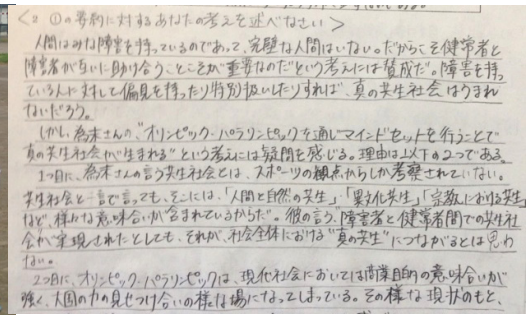 <2 ①の要約に対するあなたの考えを述べなさい>
人間はみな障害を持っているのであって、完璧な人間はいない。だからこそ健常者と
障害者が互いに助け合うことこそが重要なのだという考えには賛成だ。障害を持っ
ている人に対して偏見を持ったり特別扱いしたりすれば、真の共生社会はうまれ
ないだろう。
しかし、為末さんの、"オリンピック・パラリンピックを通じマインドセットを行うことで
真の共生社会が生まれる"という考えには疑問を感じる。理由は以下の2つである。
1つ目に、為末さんの言う共生社会とは、スポーツの観点からしか考察されていない。
共生社会と一言で言っても、そこには、「人間と自然の共生」「異文化共生」「宗教における共生」
など、様々な意味合いが含まれているからだ。彼の言う、障害者と健常者間での共生社
会が実現されたとしても、それが、社会全体における"真の共生"につながるとは思わ
ない。
2つ目に、オリンピック・パラリンピックは、現代社会においては商業目的の意味合いが
強く、大国の力の見せつけ合いの様な場になってしまっている。その様な現状のもと、